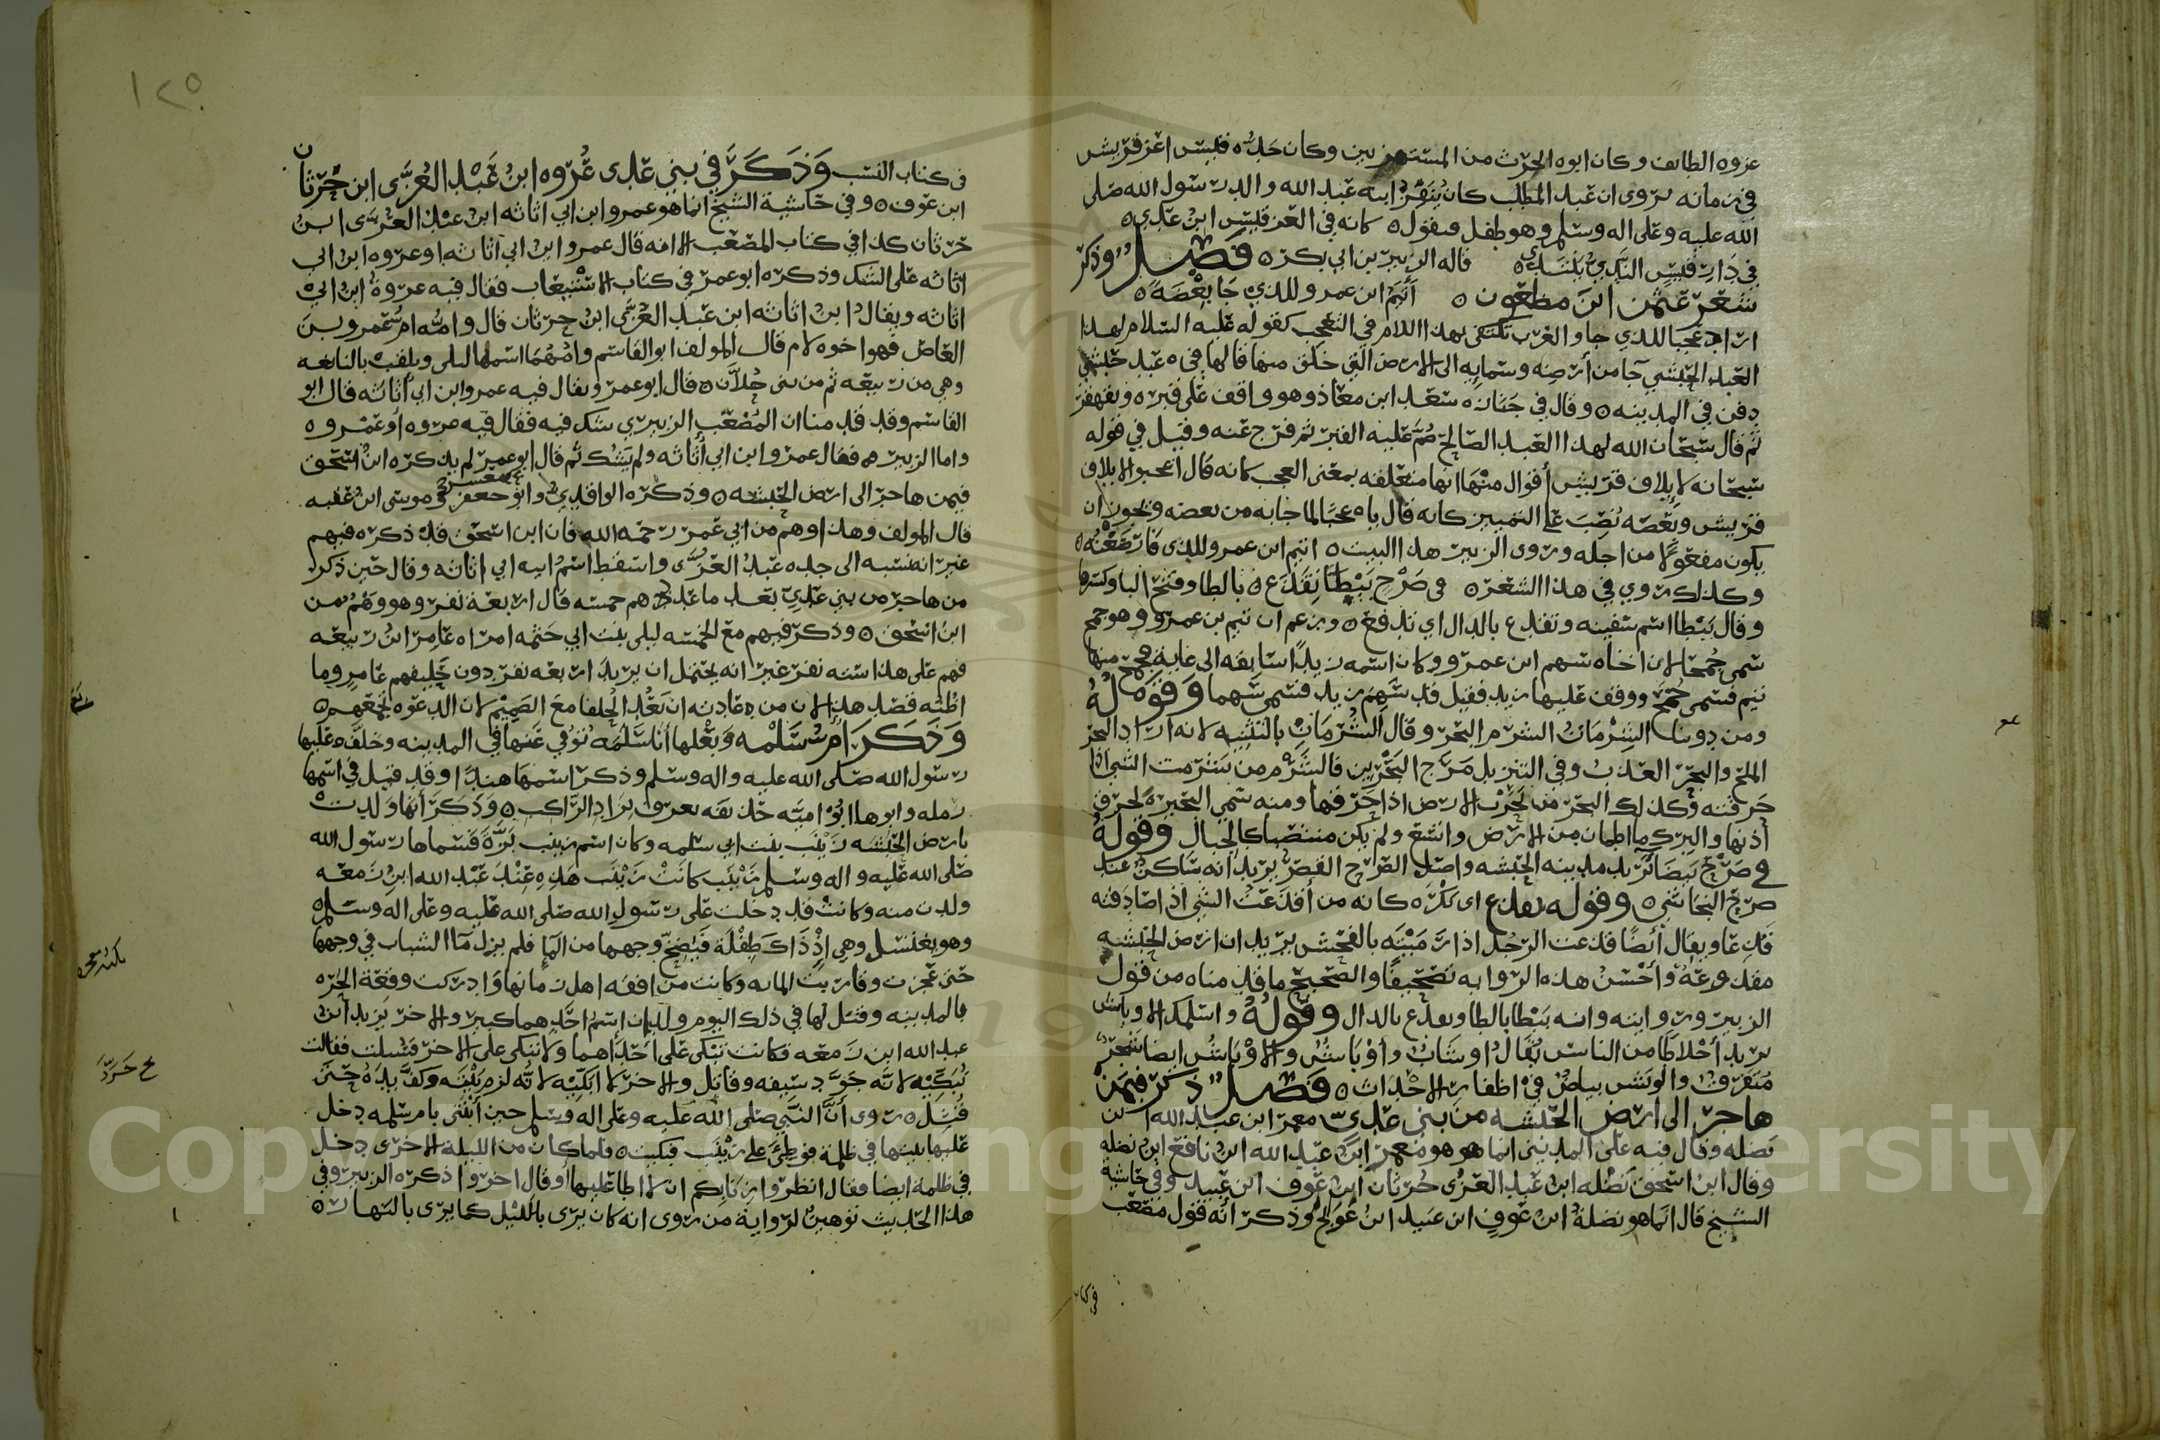 عروه الطايف وكان ابوه الحرث من المستهزيين وكان جده قيس اعز قريش
في زمانه يروى ان عبد المطلب كان ينقز ابنه عبد الله والد رسول الله صلى
الله عليه وعلى اله وسلم وهو طفل ويقول ه كانه في العز قيس ابن عدي ه
في دار قيس الندي ينتدي ه قاله الزبير بن ابي بكر ه فصل وذكر
شعر عثمن ابن مظعون ه أتيم ابن عمرو للذي جا بغضة ه
اراد عجبا للذي جا والعرب تكتفى بهذا اللام في التعجب كقوله عليه السلام لهذا
العبد الحبشي جا من أرضه وسمايه الى الارض التي خلق منها قالها في ه عبد حبشي
دفن في المدينه ه وقال في جنازه سعد ابن معاذ وهو واقف على قبره وتقهقر
ثم قال سبحان الله لهذا العبد الصالح ضم عليه القبر ثم فرج عنه وقيل في قوله
سبحانه لايلاف قريش أقوال منها انها متعلقه بمعنى العجب كانه قال اعجبوا لايلاف
قريش وبغضه نصب على التمييز كانه قال يا عجبا لما جا به من بغضه ويجوز ان
يكون مفعولا من اجله وروى الزبير هذا البيت ه اتيم ابن عمرو للذى فار ضغنه ه
وكذلك روي في هذا الشعر ه في صرح بيطا تقدع ه بالطا وفتح البا وكسرها
وقال بيطا اسم سفينه وتقدع بالدال اي تدفع ه وزعم ان تيم بن عمرو وهو جمح
سمى جمحا لان اخاه سهم ابن عمرو وكان اسمه زيدا سابقه الى غاية فجمح منها
تيم فسمى جمح ووقف عليها زيد فقيل قد سهم زيد فسمى سهما وقوله
ومن دوننا الشرمان الشرم البحر وقال الشرمان بالتثنيه لانه اراد البحر
الملح والبحر العذب وفي التنزيل مرج البحرين فالشرم من شرمت الشي اذا
خرقته وكذلك البحر من بحرت الارض اذا خرقها ومنه سمي البحيره لخرق
أذنها والبرك ما اطمان من الارض واتسع ولم يكن منتصبا كالجبال وقوله
في صرح بيضا يريد مدينه الحبشه واصل الصرح القصر يريد انه ساكن عند
صرح النجاشي ه وقوله تقذع اى تكره كانه من أقذعت الشي اذا صادفته
قذعا ويقال أيضا قذعت الرجل اذا رميته بالفحش يريد ان ارض الحبشه
مقذوعة وأحسن هذه الروايه تصحيفا والصحيح ما قدمناه من قول
الزبير وروايته وانه بيطا بالطا وتقدع بالدال وقوله واسلمك الاوباش
يريد أخلاطا من الناس يقال اوشاب واوباش والاوباش ايضا شجر
متفرق والوبش بياض في اظفار الاحداث ه فصل ذكر فيمن
هاجر الى ارض الحبشه من بني عدي معمر ابن عبد الله ابن
نضله وقال فيه على المديني انما هو هو معمر ابن عبد الله ابن نافع ابن نضله
وقال ابن اسحق نضله ابن عبد العزى حرثان ابن عوف ابن عبيد وفي حاشية
الشيخ قال انما هو نضلة ابن عوف ابن عبيد ابن عويج وذكر انه قول مصعب
في كتا
١٢٥
في كتاب النسب وذكر في بني عدى عروه ابن عبد العزى ابن حرثان
ابن عوف ه وفي حاشية الشيخ انما هو عمرو ابن ابي اثاثه ابن عبد العزى ابن
حرثان كذا في كتاب المصعب الا انه قال عمرو ابن ابي اثاثه او عروه ابن ابي
اثاثه على الشك وذكره ابو عمر في كتاب الاستيعاب فقال فيه عروة ابن ابي
اثاثه ويقال ابن اثاثه ابن عبد العزى ابن حرثان قال وامه ام عمرو بن
العاص فهو اخوه لام قال المولف ابو القاسم وامهما اسمها ليلى وتلقب بالنابغه
وهي من ربيعه ثم من بنى جلان ه قال ابو عمر ويقال فيه عمرو ابن ابي اثاثه قال ابو
القاسم وقد قدمنا ان المصعب الزبيري شك فيه فقال فيه عروه او عمرو ه
واما الزبير ه فقال عمرو ابن ابي أثاثه ولم يشك ثم قال ابو عمر لم يذكره ابن اسحق
فيمن هاجر الى ارض الحبشه ه وذكره الواقدي وابو معشر وموسى ابن عقبه
قال المولف وهذا وهم من ابي عمر رحمه الله فان ابن اسحق قد ذكره فيهم
غير انه نسبه الى جده عبد العزى واسقط اسم ابيه ابي اثاثه وقال حين ذكر
من هاجر من بني عدي بعد ما عدهم خمسه قال اربعة نفر وهو وهم من
ابن اسحق ه وذكر فيهم مع الخمسه ليلى بنت ابي حثمه امراه عامر ابن ربيعه
فهم على هذا سته نفر غير انه يحتمل ان يريد اربعه نفر دون حليفهم عامر وما
اظنه قصد هذا لان من عادته ان يعد الحلفا مع الصميم لان الدعوه تجمعهم ه
وذكر ام سلمه وبعلها أبا سلمه توفي عنها في المدينه وخلف عليها
رسول الله صلى الله عليه واله وسلم وذكر اسمها هندا وقد قيل في اسمها
رمله وابوها ابو امية حذيفه يعرف بزاد الراكب ه وذكر انها ولدت
بارض الحبشه زينب بنت ابي سلمه وكان اسم زينب برة فسماها رسول الله
صلى الله عليه واله وسلم زينب كانت زينب هذه عند عبد الله ابن زمعه
ولدت منه وكانت قد دخلت على رسول الله صلى الله عليه وعلى اله وسلم
وهو يغتسل وهي اذ ذاك طفلة فنضح وجهها من الما فلم يزل ما الشباب في وجهها
حتى عجزت وقاربت المايه وكانت من افقه اهل زمانها وادركت وقعة الحره
بالمدينه وقتل لها في ذلك اليوم ولدان اسم احدهما كبير والاخر يزيد ابن
عبد الله ابن زمعه فكانت تبكي على احدهما ولا تبكي على الاخر فسيلت فقالت
نبكيه لانه جرد سيفه وقاتل والاخر لا ابكيه لانه لزم بيته وكف يده حتى
قتل ه روى ان النبي صلى الله عليه وعلى اله وسلم حين أبتنى بام سلمه دخل
عليها بيتها في ظلمة فوطئ على زينب فبكيت ه فلما كان من الليلة الاخرى دخل
في ظلمه ايضا فقال انظروا زنابكم ان لا اطا عليها او قال اخروا ذكره الزبير وفي
هذا الحديث توهين لرواية من روى انه كان يرى بالليل كما يرى بالنهار ه